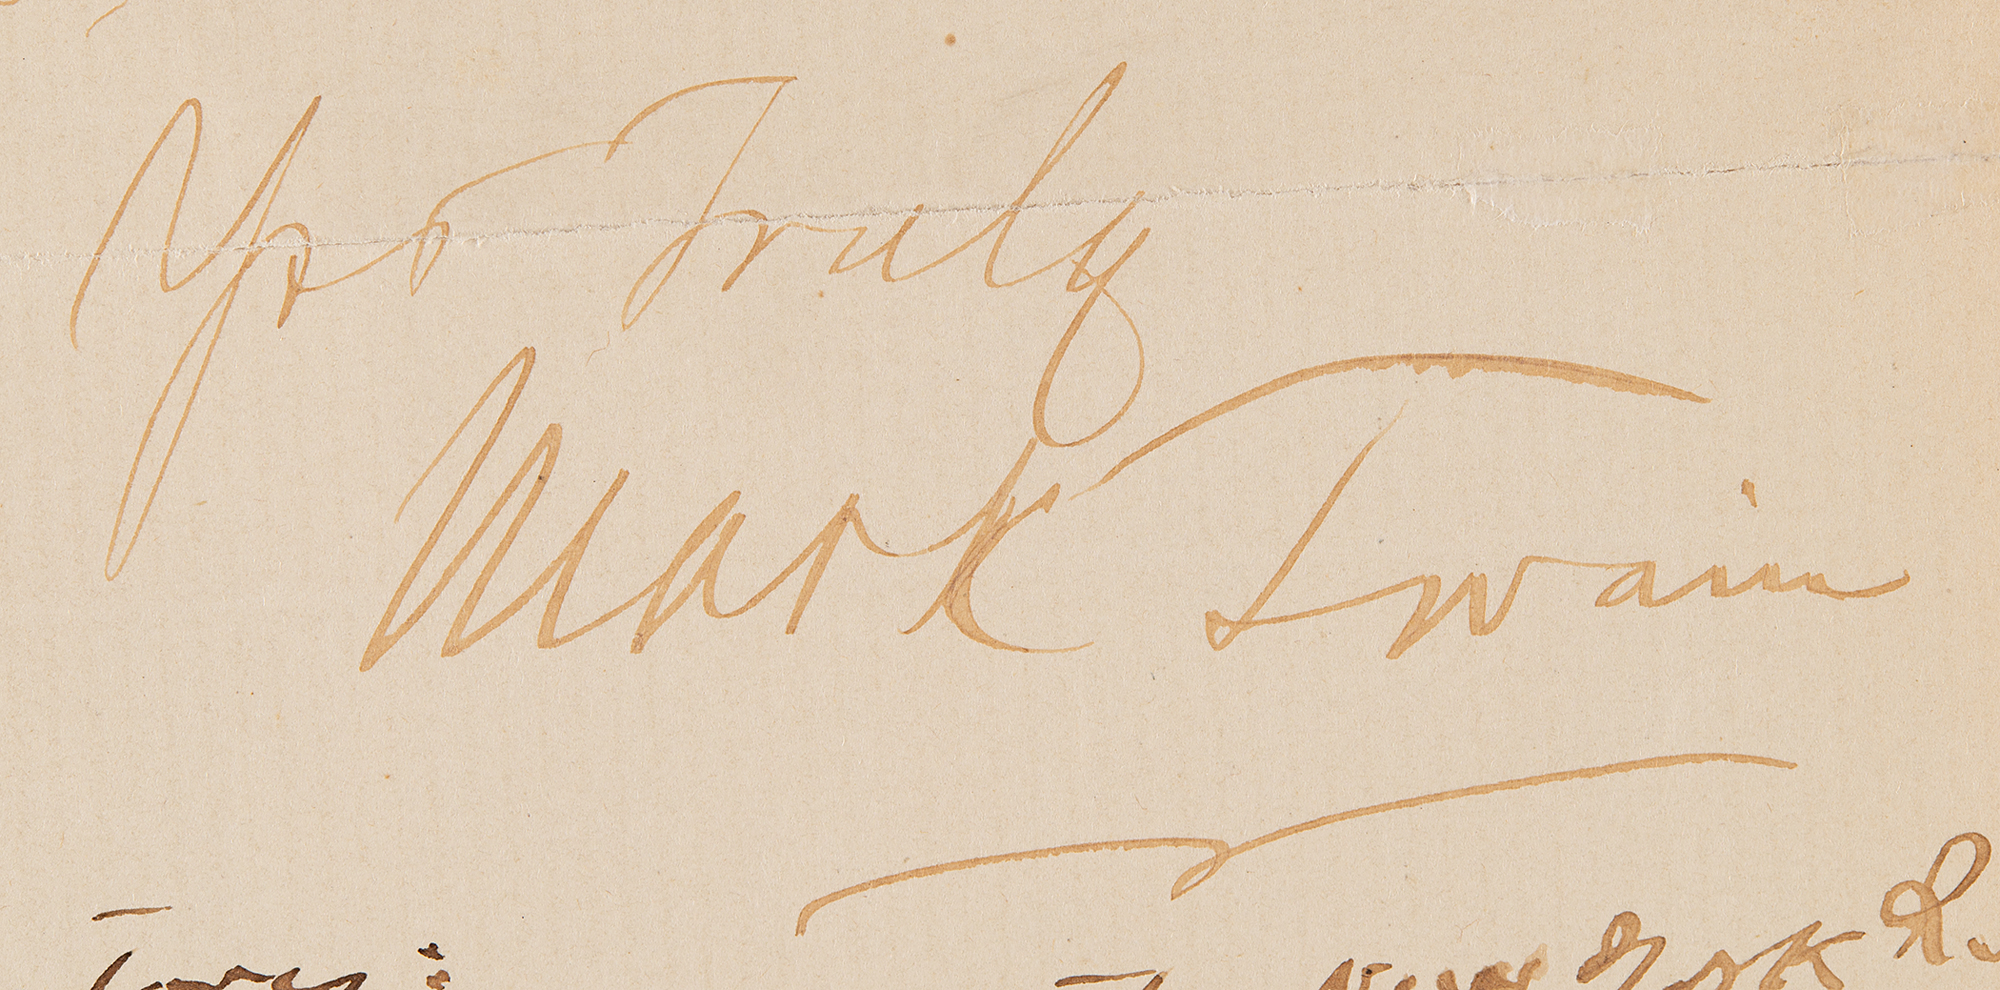 Yrs Truly
Mark Twain
New York